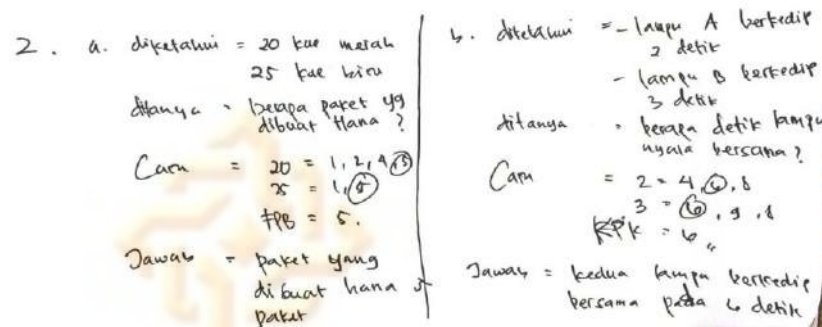 2. a. diketahui = 20 kue merah
25 kue biru
ditanya = berapa paket yg
dibuat Hana ?
Cara = 20 = 1, 2, 4, 5
25 = 1, 5
FPB = 5.
Jawab = paket yang
dibuat hana 5
paket
b. diketahui = - lampu A berkedip
2 detik
- lampu B berkedip
3 detik
ditanya = berapa detik lampu
nyala bersama ?
Cara = 2 = 4, 6, 8
3 = 6, 9, 
KPK = 6 "
Jawab = kedua lampu berkedip
bersama pada 6 detik